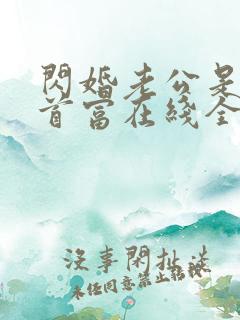 閃婚老公是
首富在綫全
沒事閑扯談
未经同意禁止转载